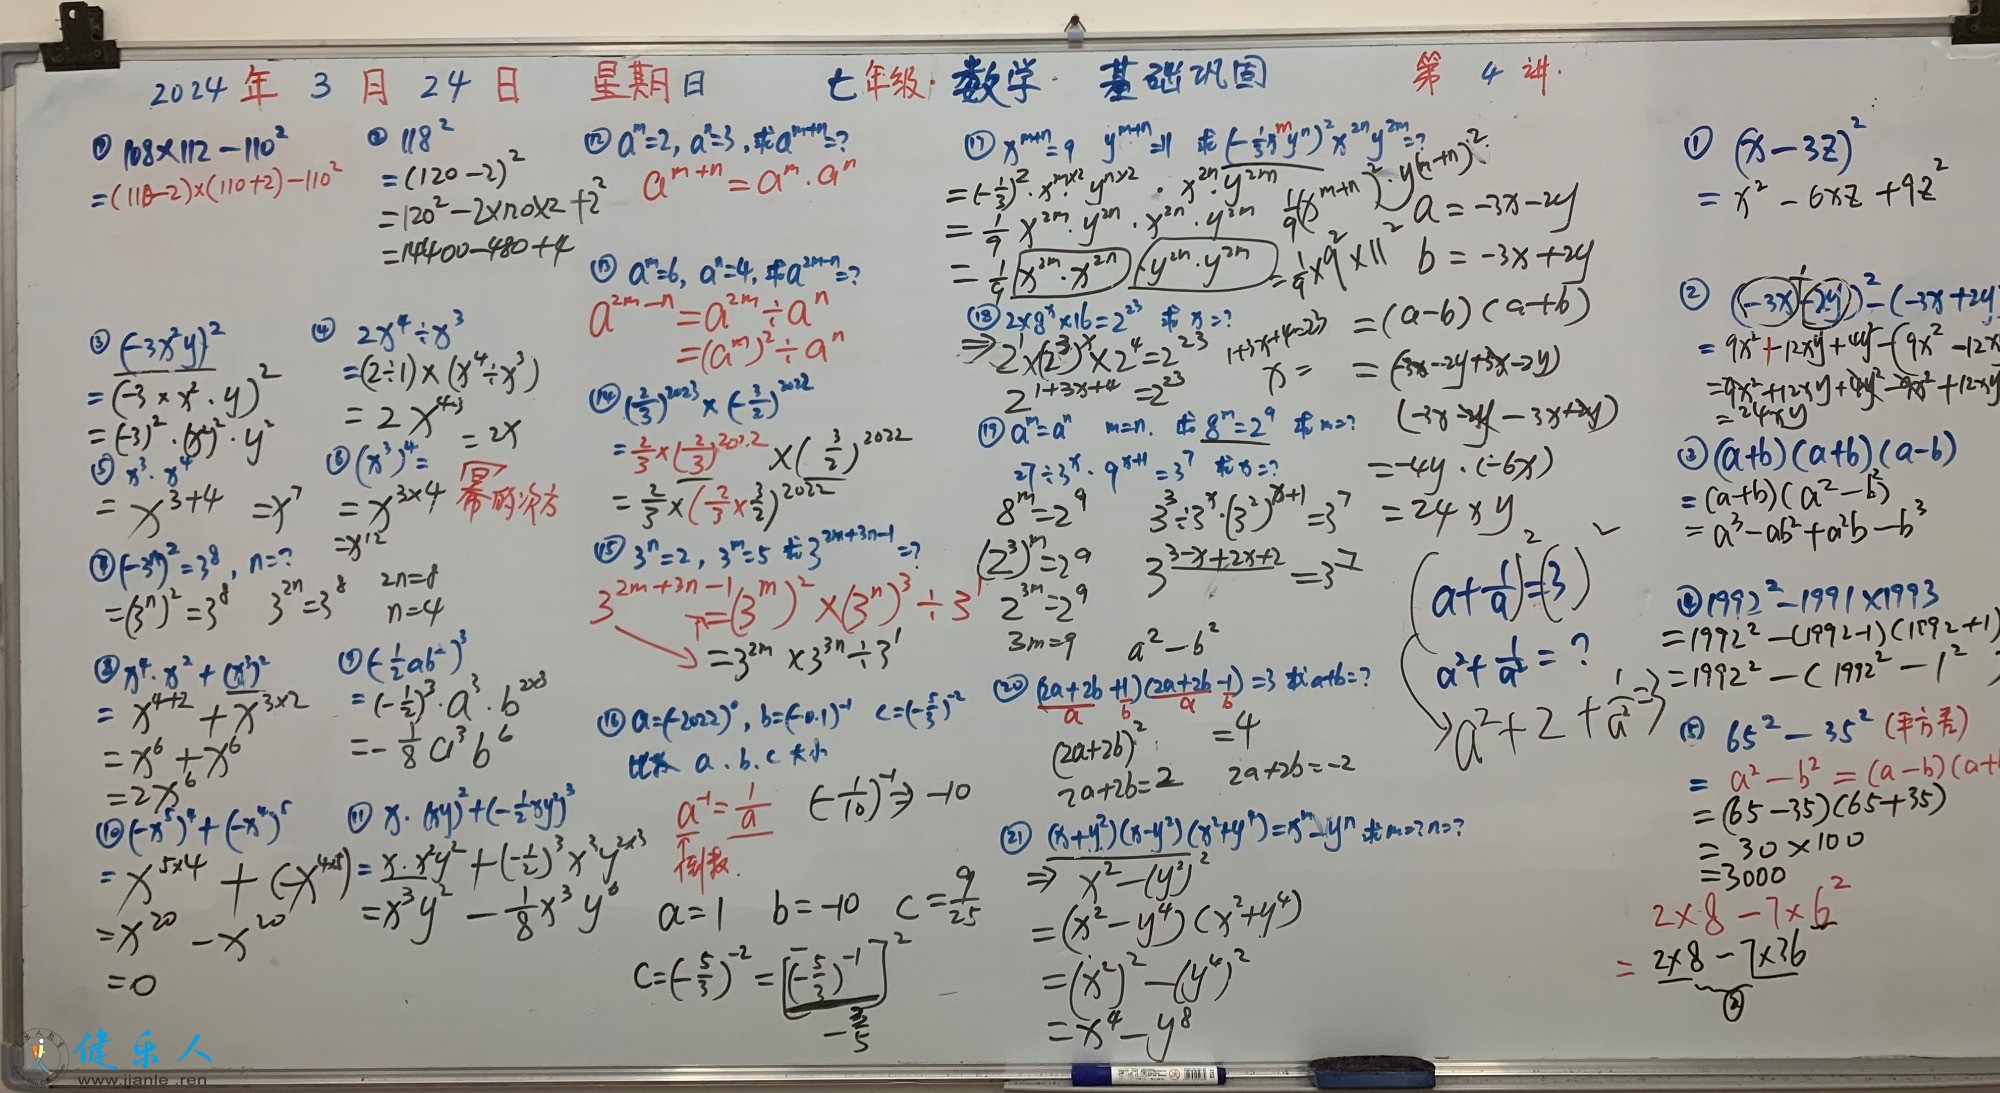 2024年3月24日 星期日 七年级·数学·基础巩固 第4讲.
① 108×112-110²
=(110-2)×(110+2)-110²
② 118²
=(120-2)²
=120²-2×120×2+2²
=14400-480+4
③ (-3x²y)²
=(-3×x²·y)²
=(-3)²·(x²)²·y²
④ 2x⁴÷x³
=(2÷1)×(x⁴÷x³)
=2x⁴⁻³
=2x
⑤ x³·x⁴
=x³⁺⁴=x⁷
⑥ (x³)⁴=
=x³ˣ⁴ 幂的次方
=x¹²
(-3ⁿ)²=3⁸, n=?
=(3ⁿ)²=3⁸ 3²ⁿ=3⁸ 2n=8
n=4
⑧ x⁴·x²+(x³)²
=x⁴⁺²+x³ˣ²
=x⁶+x⁶
=2x⁶
⑨ (-½ab²)³
=(-½)³·a³·b²ˣ³
=-⅛a³b⁶
⑩ (-x⁵)⁴+(-x⁴)⁵
=x⁵ˣ⁴+(-x⁴ˣ⁵)
=x²⁰-x²⁰
=0
⑪ x·(xy)²+(-½xy²)³
=x·x²y²+(-½)³x³y²ˣ³
=x³y²-⅛x³y⁶
⑫ aᵐ=2, aⁿ=3, 求aᵐ⁺ⁿ=?
aᵐ⁺ⁿ=aᵐ·aⁿ
⑬ aᵐ=6, aⁿ=4, 求a²ᵐ⁻ⁿ=?
a²ᵐ⁻ⁿ=a²ᵐ÷aⁿ
=(aᵐ)²÷aⁿ
⑭ (⅔)²⁰²³×(-3/2)²⁰²²
=⅔×(⅔)²⁰²²×(3/2)²⁰²²
=⅔×(⅔×3/2)²⁰²²
⑮ 3ⁿ=2, 3ᵐ=5 求3²ᵐ⁺³ⁿ⁻¹=?
3²ᵐ⁺³ⁿ⁻¹=(3ᵐ)²×(3ⁿ)³÷3¹
=3²ᵐ×3³ⁿ÷3¹
⑯ a=(-2022)⁰, b=(-0.1)⁻¹ c=(-5/3)⁻²
比较 a.b.c大小
a⁻¹=1/a (-1/10)⁻¹⇒-10
倒数.
a=1 b=-10 c=9/25
C=(-5/3)⁻²=[(-5/3)⁻¹]²
-3/5
⑰ xᵐ⁺ⁿ=9 yᵐ⁺ⁿ=11 求(-⅓xᵐyⁿ)²x²ⁿy²ᵐ=?
=(-⅓)²·xᵐˣ²yⁿˣ²·x²ⁿ·y²ᵐ
1/9(xᵐ⁺ⁿ)²·y(ᵐ⁺ⁿ)²
=1/9x²ᵐ·y²ⁿ·x²ⁿ·y²ᵐ
=1/9(x²ᵐ·x²ⁿ)(y²ⁿ·y²ᵐ)=1/9×9²×11²
⑱ 2×8ˣ×16=2²³ 求x=?
⇒2¹×(2³)ˣ×2⁴=2²³ 1+3x+4=23
2¹⁺³ˣ⁺⁴=2²³ x=
⑲ aᵐ=aⁿ m=n. 求8ᵐ=2⁹ 求m=?
27÷3ˣ·9ˣ⁺¹=3⁷ 求x=?
8ᵐ=2⁹ 3³÷3ˣ·(3²)ˣ⁺¹=3⁷
(2³)ᵐ=2⁹ 3³⁻ˣ⁺²ˣ⁺²=3⁷
2³ᵐ=2⁹
3m=9 a²-b²
⑳ (2a+2b+1)(2a+2b-1)=3 求a+b=?
a b a b
(2a+2b)²=4
2a+2b=2 2a+2b=-2
㉑ (x+y²)(x-y²)(x²+y⁴)=xᵐ-yⁿ 求m=?n=?
⇒x²-(y²)²
=(x²-y⁴)(x²+y⁴)
=(x²)²-(y⁴)²
=x⁴-y⁸
a=-3x-2y
b=-3x+2y
=(a-b)(a+b)
=(-3x-2y+3x-2y)
(-3x-2y-3x+2y)
=-4y·(-6x)
=24xy
(a+1/a)²=(3)²
a²+1/a²=?
a²+2+1/a²=3
① (x-3z)²
=x²-6xz+9z²
② (-3x-2y)²-(-3x+2y)
=9x²+12xy+4y²-(9x²-12x
=9x²+12xy+4y²-9x²+12xy
=24xy
③ (a+b)(a+b)(a-b)
=(a+b)(a²-b²)
=a³-ab²+a²b-b³
④ 1992²-1991×1993
=1992²-(1992-1)(1992+1)
=1992²-(1992²-1²)
⑤ 65²-35² (平方差)
=a²-b²=(a-b)(a+b
=(65-35)(65+35)
=30×100
=3000
2×8-7×6²
=2×8-7×36
②
健乐人
www.jianle.ren